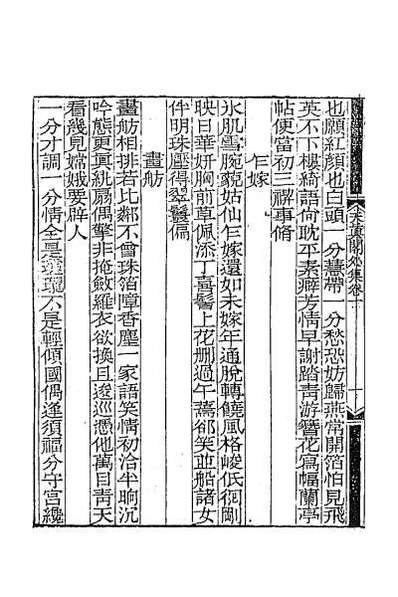 也願紅顏也白頭一分慧帶一分愁恐妨歸燕常開箔怕見飛
英不下樓綺語尙耽平素癖芳情早謝踏靑游簪花寫幅蘭亭
帖便當初三禊事脩
乍嫁
氷肌雪腕藐姑仙乍嫁還如未嫁年通脫轉饒風格峻低徊剛
映日華妍胸前草佩添丁喜鬢上花删過午蔫郤笑並船諸女
伴明珠壓得翠鬟偏
畫舫
畫舫相排若比鄰不曾珠箔障香塵一家語笑情初洽半晌沉
吟態更眞紈扇偶擎非掩斂羅衣欲換且逡巡憑他萬目靑天
看幾見嫦娥要辟人
一分才調一分情全是 不是輕傾國偶逢須福分守宮纔
外集卷